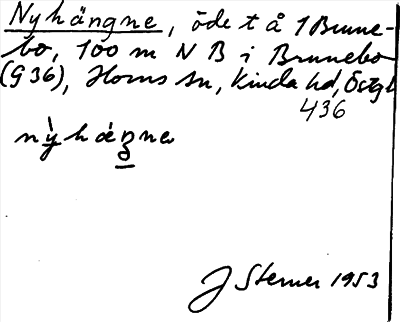 Nyhängne, öde t å 1 Brunne-
bo, 100 m N B i Brunnebo
(G 36), Horns sn, Kinda hd, Östgl
436
nỳháŋne
J Sterner 1953